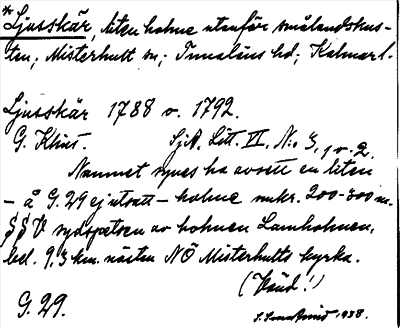 * Ljusskär, liten holme utanför smålandskus-
ten; Misterhult sn; Tunaläns hd; Kalmar l.
Ljusskär 1788 o. 1792.
G. Klint. SjA. Litt. VI, N:o 3, 1 o. 2.
Namnet synes ha avsett en liten
– å G. 29 ej utsatt – holme omkr. 200-300 m.
SSV sydspetsen av holmen Lamholmen,
bel. 9,3 km. nästan NÖ Misterhults kyrka.
(Vänd!)
G. 29. 1938.